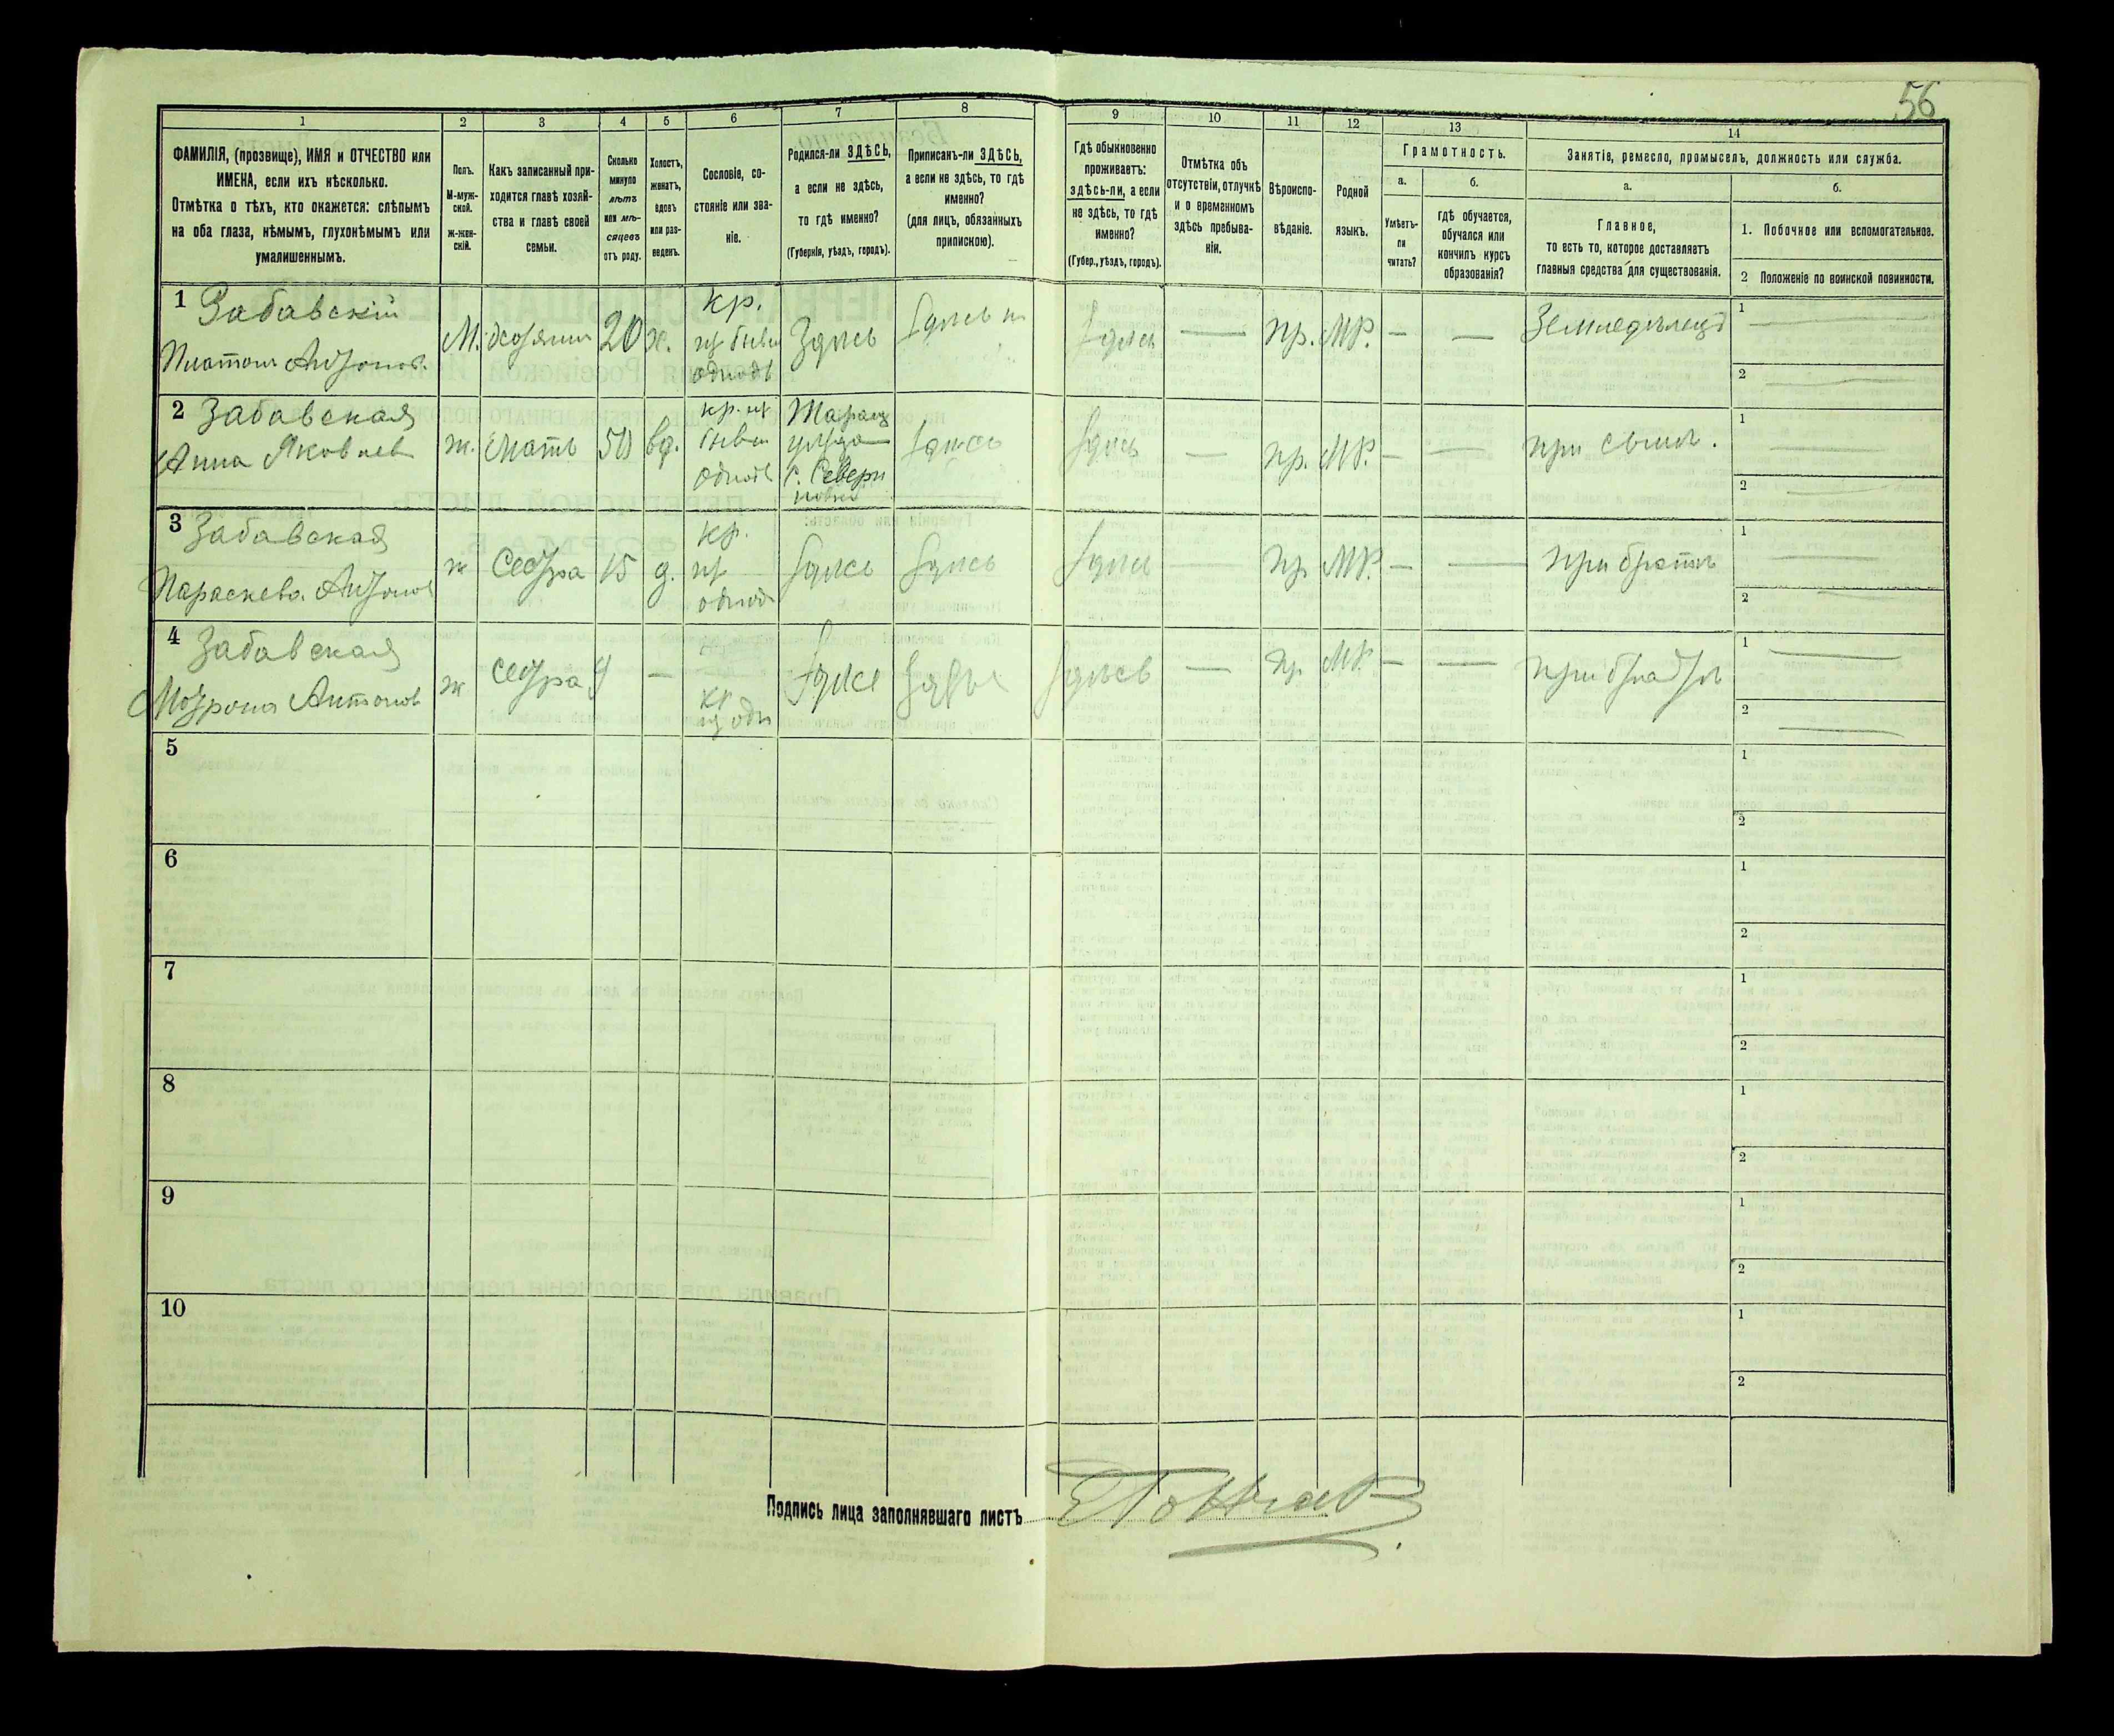 56
1
2
3
4
5
6
7
8
9
10
11
12
13
14
ФАМИЛІЯ, (прозвище), ИМЯ и ОТЧЕСТВО или
ИМЕНА, если ихъ нѣсколько.
Отмѣтка о тѣхъ, кто окажется: слѣпымъ
на оба глаза, нѣмымъ, глухонѣмымъ или
умалишеннымъ.
Полъ.
М-муж-
ской.
Ж-жен-
скій.
Какъ записанный при-
ходится главѣ хозяй-
ства и главѣ своей
семьи.
Сколько
минуло
лѣтъ
или мѣ-
сяцевъ
отъ роду.
Холостъ,
женатъ,
вдовъ
или раз-
веденъ.
Сословіе, со-
стояніе или зва-
ніе.
Родился-ли ЗДѢСЬ,
а если не здѣсь,
то гдѣ именно?
(Губернія, уѣздъ, городъ).
Приписанъ-ли ЗДѢСЬ,
а если не здѣсь, то гдѣ
именно?
(для лицъ, обязанныхъ
припискою).
Гдѣ обыкновенно
проживаетъ:
здѣсь-ли, а если
не здѣсь, то гдѣ
именно?
(Губер., уѣздъ, городъ).
Отмѣтка объ
отсутствіи, отлучкѣ
и о временномъ
здѣсь пребыва-
ніи.
Вѣроиспо-
вѣданіе.
Родной
языкъ.
Грамотность.
а.
б.
Умѣетъ-
ли
читать?
гдѣ обучается,
обучался или
кончилъ курсъ
образованія?
Занятіе, ремесло, промыселъ, должность или служба.
а.
б.
Главное,
то есть то, которое доставляетъ
главныя средства для существованія.
1. Побочное или вспомогательное.
2 Положеніе по воинской повинности.
1 Забавскій
Платонъ Антонов.
М. хозяинъ 20 х.
кр.
из бывш
однодв
Здѣсь
Здѣсь
Здѣсь
— пр. МР. — —
Земледѣлецъ
1
2
2 Забавская
Анна Яковлев
ж. мать 50 вд.
кр. из
бывш
однодв
Таращ
уѣзда
с. Севери
новка
Здѣсь
Здѣсь
— пр. МР. — —
при сынѣ.
1
2
3 Забавская
Параскева Антонов
ж сестра 15 д.
кр.
из
однод
Здѣсь
Здѣсь
Здѣсь
— пр МР. — —
при братѣ
1
2
4 Забавская
Мотрона Антонов
ж сестра 9 —
кр
из одн
Здѣсь
Здѣсь
Здѣсь
— пр МР. — —
при братѣ
1
2
5
1
2
6
1
2
7
1
2
8
1
2
9
1
2
10
1
2
Подпись лица заполнявшаго листъ